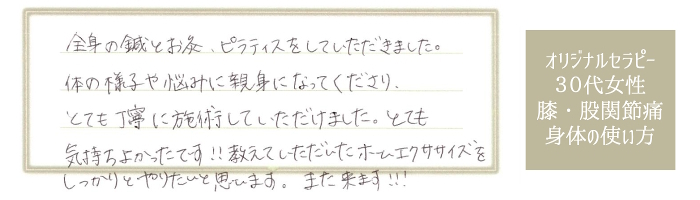 全身の鍼とお灸、ピラティスをしていただきました。
体の様子や悩みに親身になってくださり、
とても丁寧に施術していただけました。とても
気持ちよかったです!!教えていただいたホームエクササイズを
しっかりとやりたいと思います。また来ます!!!
オリジナルセラピー
30代女性
膝・股関節痛
身体の使い方